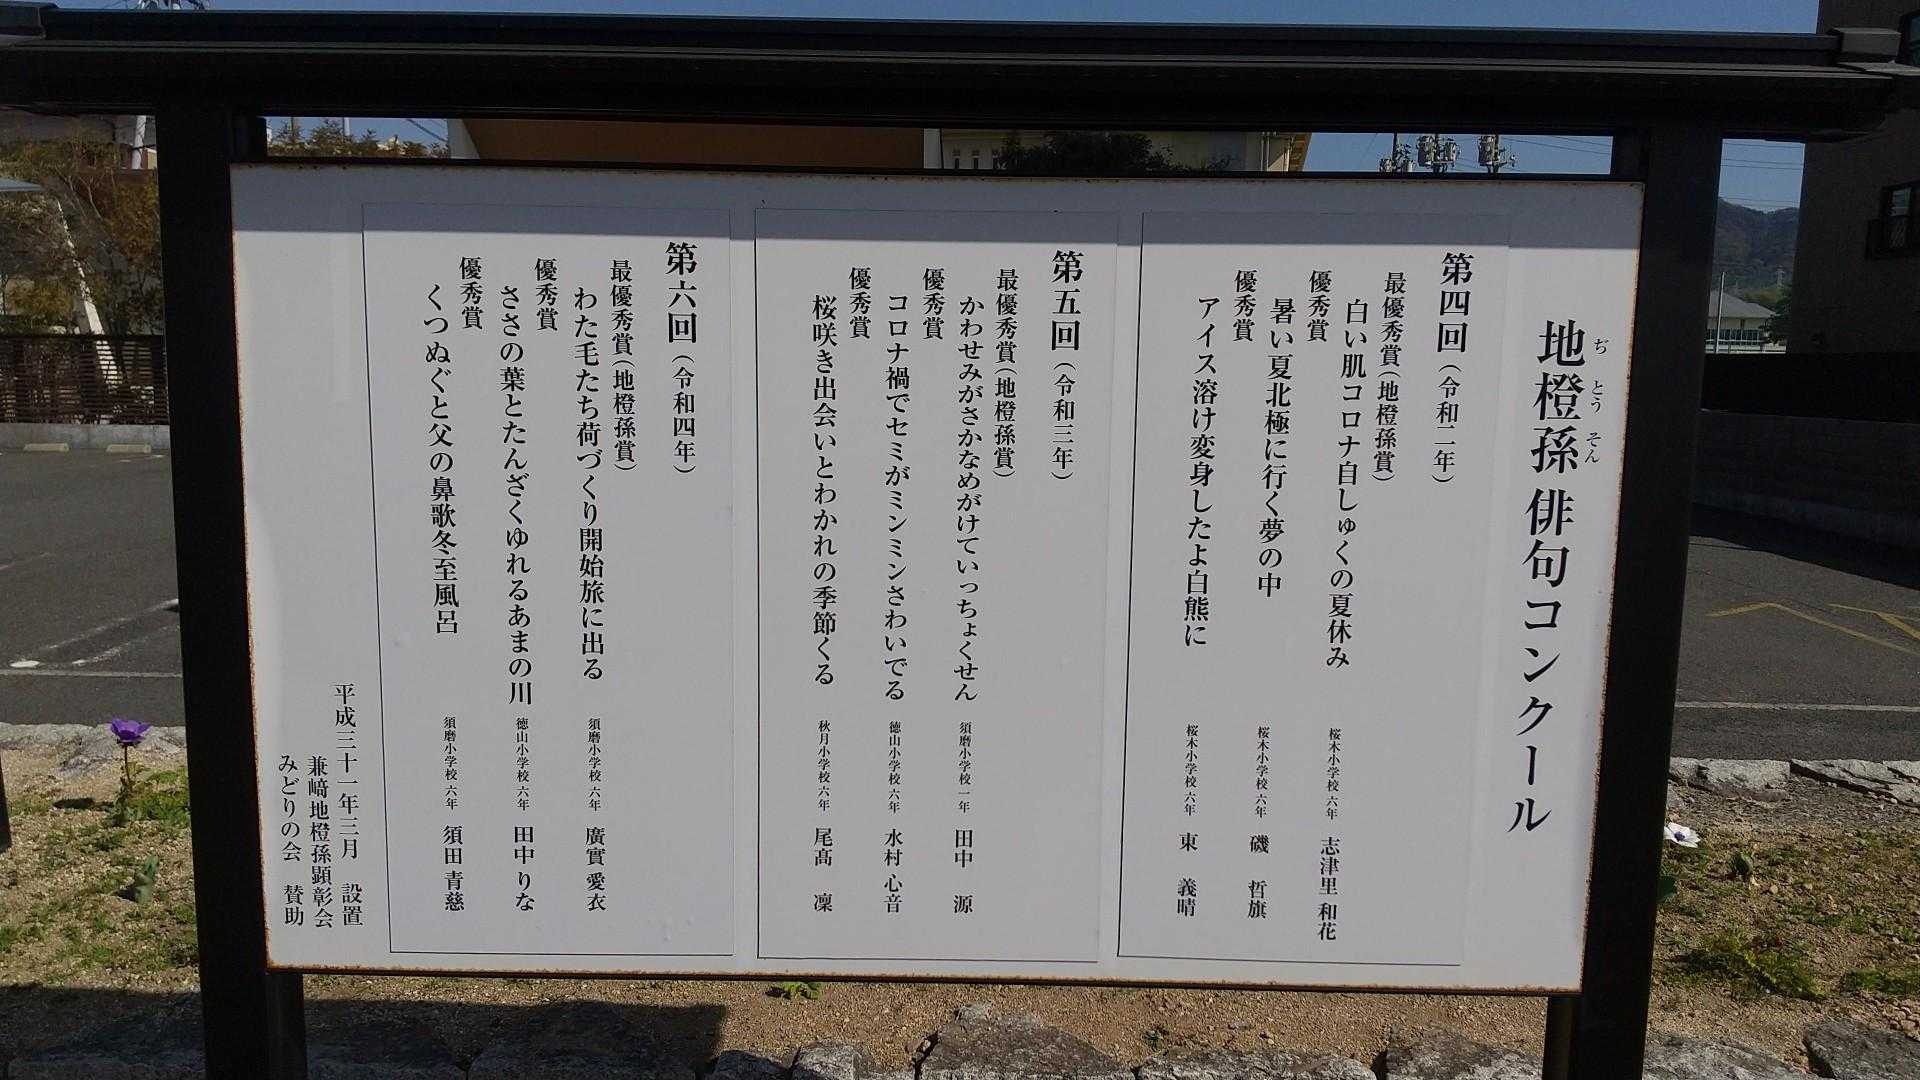 地橙孫俳句コンクール
ぢとうそん
第四回（令和二年）
最優秀賞（地橙孫賞）
白い肌コロナ自しゅくの夏休み 桜木小学校 六年 志津里 和花
優秀賞
暑い夏北極に行く夢の中 桜木小学校 六年 磯 哲旗
優秀賞
アイス溶け変身したよ白熊に 桜木小学校 六年 東 義晴
第五回（令和三年）
最優秀賞（地橙孫賞）
かわせみがさかなめがけていっちょくせん 須磨小学校 一年 田中 源
優秀賞
コロナ禍でセミがミンミンさわいでる 徳山小学校 六年 水村 心音
優秀賞
桜咲き出会いとわかれの季節くる 秋月小学校 六年 尾髙 凜
第六回（令和四年）
最優秀賞（地橙孫賞）
わた毛たち荷づくり開始旅に出る 須磨小学校 六年 廣實 愛衣
優秀賞
ささの葉とたんざくゆれるあまの川 徳山小学校 六年 田中 りな
優秀賞
くつぬぐと父の鼻歌冬至風呂 須磨小学校 六年 須田 青慈
平成三十一年三月 設置
兼﨑地橙孫顕彰会
みどりの会 賛助